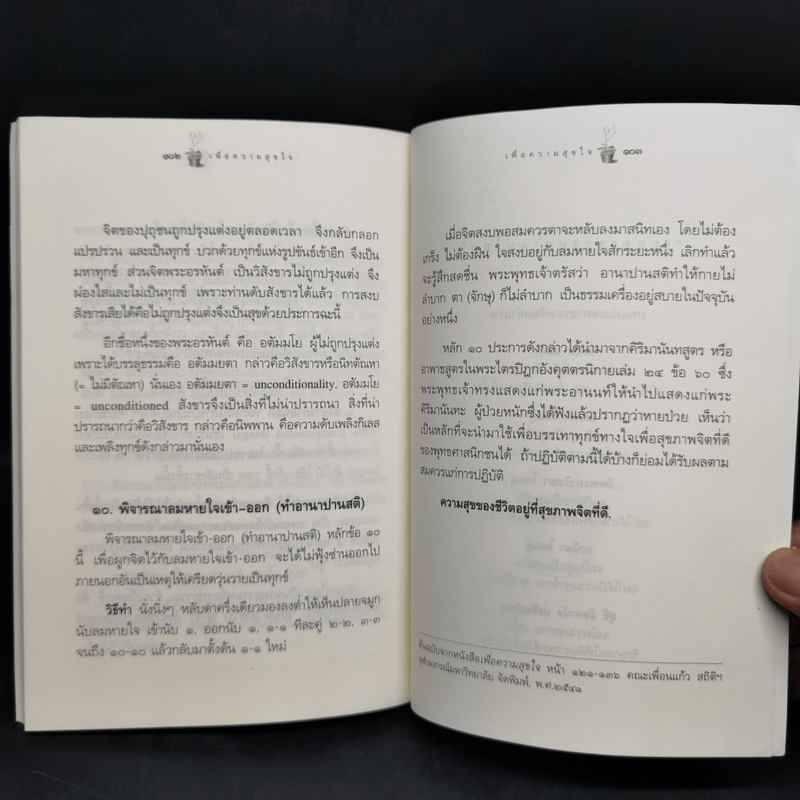 ๑๐๒ เพื่อความสุขใจ
จิตของปุถุชนถูกปรุงแต่งอยู่ตลอดเวลา จึงกลับกลอก
แปรปรวน และเป็นทุกข์ บวกด้วยทุกข์แห่งรูปขันธ์เข้าอีก จึงเป็น
มหาทุกข์ ส่วนจิตพระอรหันต์ เป็นวิสังขารไม่ถูกปรุงแต่ง จึง
ผ่องใสและไม่เป็นทุกข์ เพราะท่านดับสังขารได้แล้ว การสงบ
สังขารเสียได้คือไม่ถูกปรุงแต่งจึงเป็นสุขด้วยประการฉะนี้
อีกชื่อหนึ่งของพระอรหันต์ คือ อตัมมโย ผู้ไม่ถูกปรุงแต่ง
เพราะได้บรรลุธรรมคือ อตัมมยตา กล่าวคือวิสังขารหรือนิทตัณหา
(= ไม่มีตัณหา) นั่นเอง อตัมมยตา = unconditionality, อตัมมโย
= unconditioned สังขารจึงเป็นสิ่งที่ไม่น่าปรารถนา สิ่งที่น่า
ปรารถนากว่าคือวิสังขาร กล่าวคือนิพพาน คือความดับเพลิงกิเลส
และเพลิงทุกข์ดังกล่าวมานั่นเอง
๑๐. พิจารณาลมหายใจเข้า-ออก (ทำอานาปานสติ)
พิจารณาลมหายใจเข้า-ออก (ทำอานาปานสติ) หลักข้อ ๑๐
นี้ เพื่อผูกจิตไว้กับลมหายใจเข้า-ออก จะได้ไม่ฟุ้งซ่านออกไป
ภายนอกอันเป็นเหตุให้เครียดวุ่นวายเป็นทุกข์
วิธีทำ นั่งนิ่งๆ หลับตาครึ่งเดียวมองลงต่ำให้เห็นปลายจมูก
นับลมหายใจ เข้านับ ๑, ออกนับ ๑, ๑-๑ ทีละคู่ ๒-๒, ๓-๓
จนถึง ๑๐-๑๐ แล้วกลับมาตั้งต้น ๑-๑ ใหม่
เพื่อความสุขใจ ๑๐๓
เมื่อจิตสงบพอสมควรตาจะหลับลงมาสนิทเอง โดยไม่ต้อง
เกร็ง ไม่ต้องฝืน ใจสงบอยู่กับลมหายใจสักระยะหนึ่ง เลิกทำแล้ว
จะรู้สึกสดชื่น พระพุทธเจ้าตรัสว่า อานาปานสติทำให้กายไม่
ลำบาก ตา (จักษุ) ก็ไม่ลำบาก เป็นธรรมเครื่องอยู่สบายในปัจจุบัน
อย่างหนึ่ง
หลัก ๑๐ ประการดังกล่าวได้นำมาจากคิริมานันทสูตร หรือ
อาพาธสูตรในพระไตรปิฎกอังคุตตรนิกายเล่ม ๒๔ ข้อ ๖๐ ซึ่ง
พระพุทธเจ้าทรงแสดงแก่พระอานนท์ให้นำไปแสดงแก่พระ
คิริมานันทะ ผู้ป่วยหนักซึ่งได้ฟังแล้วปรากฏว่าหายป่วย เห็นว่า
เป็นหลักที่จะนำมาใช้เพื่อบรรเทาทุกข์ทางใจเพื่อสุขภาพจิตที่ดี
ของพุทธศาสนิกชนได้ ถ้าปฏิบัติตามนี้ได้บ้างก็ย่อมได้รับผลตาม
สมควรแก่การปฏิบัติ
ความสุขของชีวิตอยู่ที่สุขภาพจิตที่ดี.
ต้นฉบับจากหนังสือเพื่อความสุขใจ หน้า ๑๒๑-๑๓๖ คณะเพื่อนแก้ว สถิติฯ
จุฬาลงกรณ์มหาวิทยาลัย จัดพิมพ์, พ.ศ.๒๕๔๑